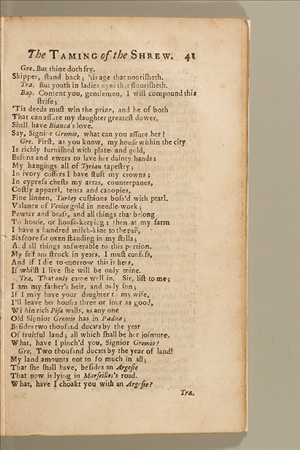 The TAMING of the SHREW. 41
Gre. But thine doth fry.
Skipper, ſtand back; 'tis age that nouriſheth.
Tra. But youth in ladies eyes that flouriſheth.
Bap. Content you, gentlemen, I will compound this
ſtrife;
'Tis deeds muſt win the prize, and he of both
That can aſſure my daughter greateſt dower,
Shall have Bianca's love.
Say, Signior Gremio, what can you aſſure her?
Gre. Firſt, as you know, my houſe within the city
Is richly furniſhed with plate and gold,
Baſons and ewers to lave her dainty hands:
My hangings all of Tyrian tapeſtry;
In ivory coffers I have ſtuft my crowns;
In cypreſs cheſts my arras, counterpanes,
Coſtly apparel, tents and canopies,
Fine linnen, Turky cuſhions boſs'd with pearl.
Valance of Venice gold in needle-work;
Pewter and braſs, and all things that belong
To houſe, or houſe-keeping; then at my farm
I have a hundred milch-kine to the pail,
Sixſcore fat oxen ſtanding in my ſtalls;
And all things anſwerable to this portion.
My ſelf am ſtrook in years, I muſt confeſs,
And if I die to-morrow this is hers,
If whilſt I live ſhe will be only mine.
Tra. That only came well in. Sir, liſt to me;
I am my father's heir, and only ſon;
If I may have your daughter to my wife,
I'll leave her houſes three or four as good,
Within rich Piſa walls, as any one
Old Signior Gremio has in Padua;
Beſides two thouſand ducats by the year
Of fruitful land; all which ſhall be her jointure.
What, have I pinch'd you, Signior Gremio?
Gre. Two thouſand ducats by the year of land!
My land amounts not to ſo much in all;
That ſhe ſhall have, beſides an Argoſie
That now is lying in Marſeilles's road.
What, have I choakt you with an Argoſie?
Tra.